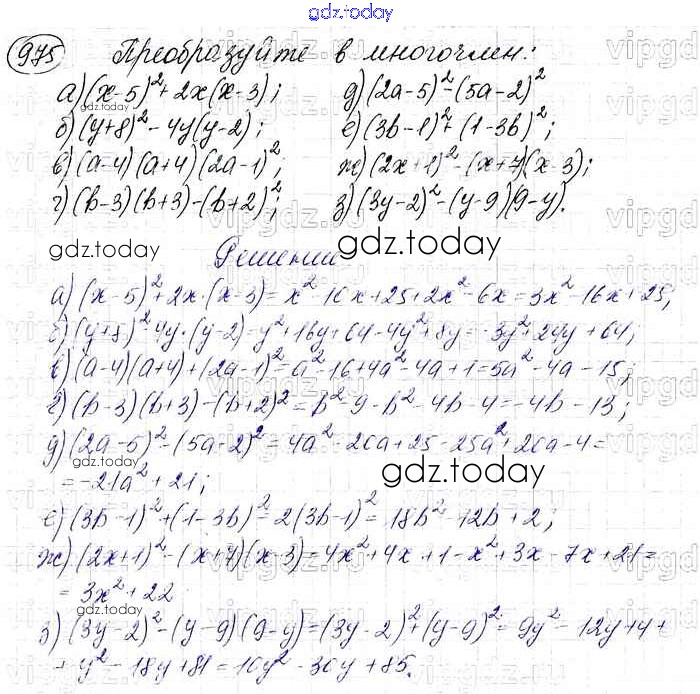 gdz.today
975 Преобразуйте в многочлен:
а) (x-5)²+2x(x-3); д) (2a-5)²-(5a-2)²
gdz.today
б) (y+8)²-4y(y-2); е) (3b-1)²+(1-3b)²;
в) (a-4)(a+4)(2a-1)²; ж) (2x+1)²-(x+7)(x-3);
г) (b-3)(b+3)-(b+2)²; з) (3y-2)²-(y-9)(9-y).
gdz.today gdz.today
Решение
а) (x-5)²+2x·(x-3)=x²-10x+25+2x²-6x=3x²-16x+25;
б) (y+8)²-4y·(y-2)=y²+16y+64-4y²+8y=-3y²+24y+64;
в) (a-4)(a+4)+(2a-1)²=a²-16+4a²-4a+1=5a²-4a-15;
gdz.today
г) (b-3)(b+3)-(b+2)²=b²-9-b²-4b-4=-4b-13;
д) (2a-5)²-(5a-2)²=4a²-20a+25-25a²+20a-4=
gdz.today gdz.today
=-21a²+21;
е) (3b-1)²+(1-3b)²=2(3b-1)²=18b²-12b+2;
ж) (2x+1)²-(x+7)(x-3)=4x²+4x+1-x²+3x-7x+21=
=3x²+22
gdz.today
з) (3y-2)²-(y-9)(9-y)=(3y-2)²+(y-9)²=9y²-12y+4+
+y²-18y+81=10y²-30y+85.
gdz.today